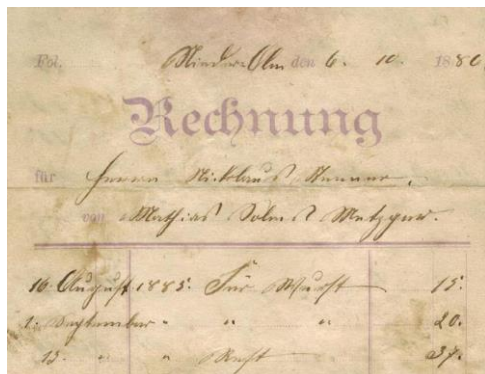 Fol. Nieder-Olm den 6. 10. 1880
Rechnung
für Herrn Nicklaus
von Mathias Metzger.
16. August 1885. Für Wurst 15.
1. September " " " 20.
13. " " 37.